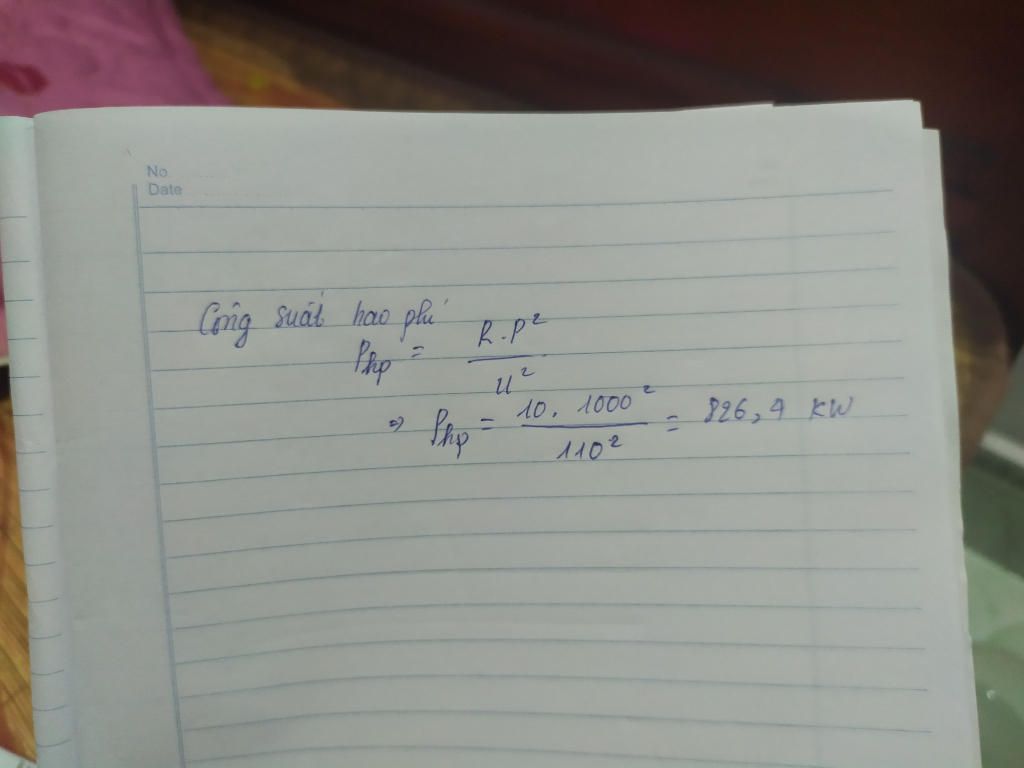 No
Date
Công suất hao phí
Php = R.P² / U²
=> Php = 10.1000² / 110² = 826,4 KW